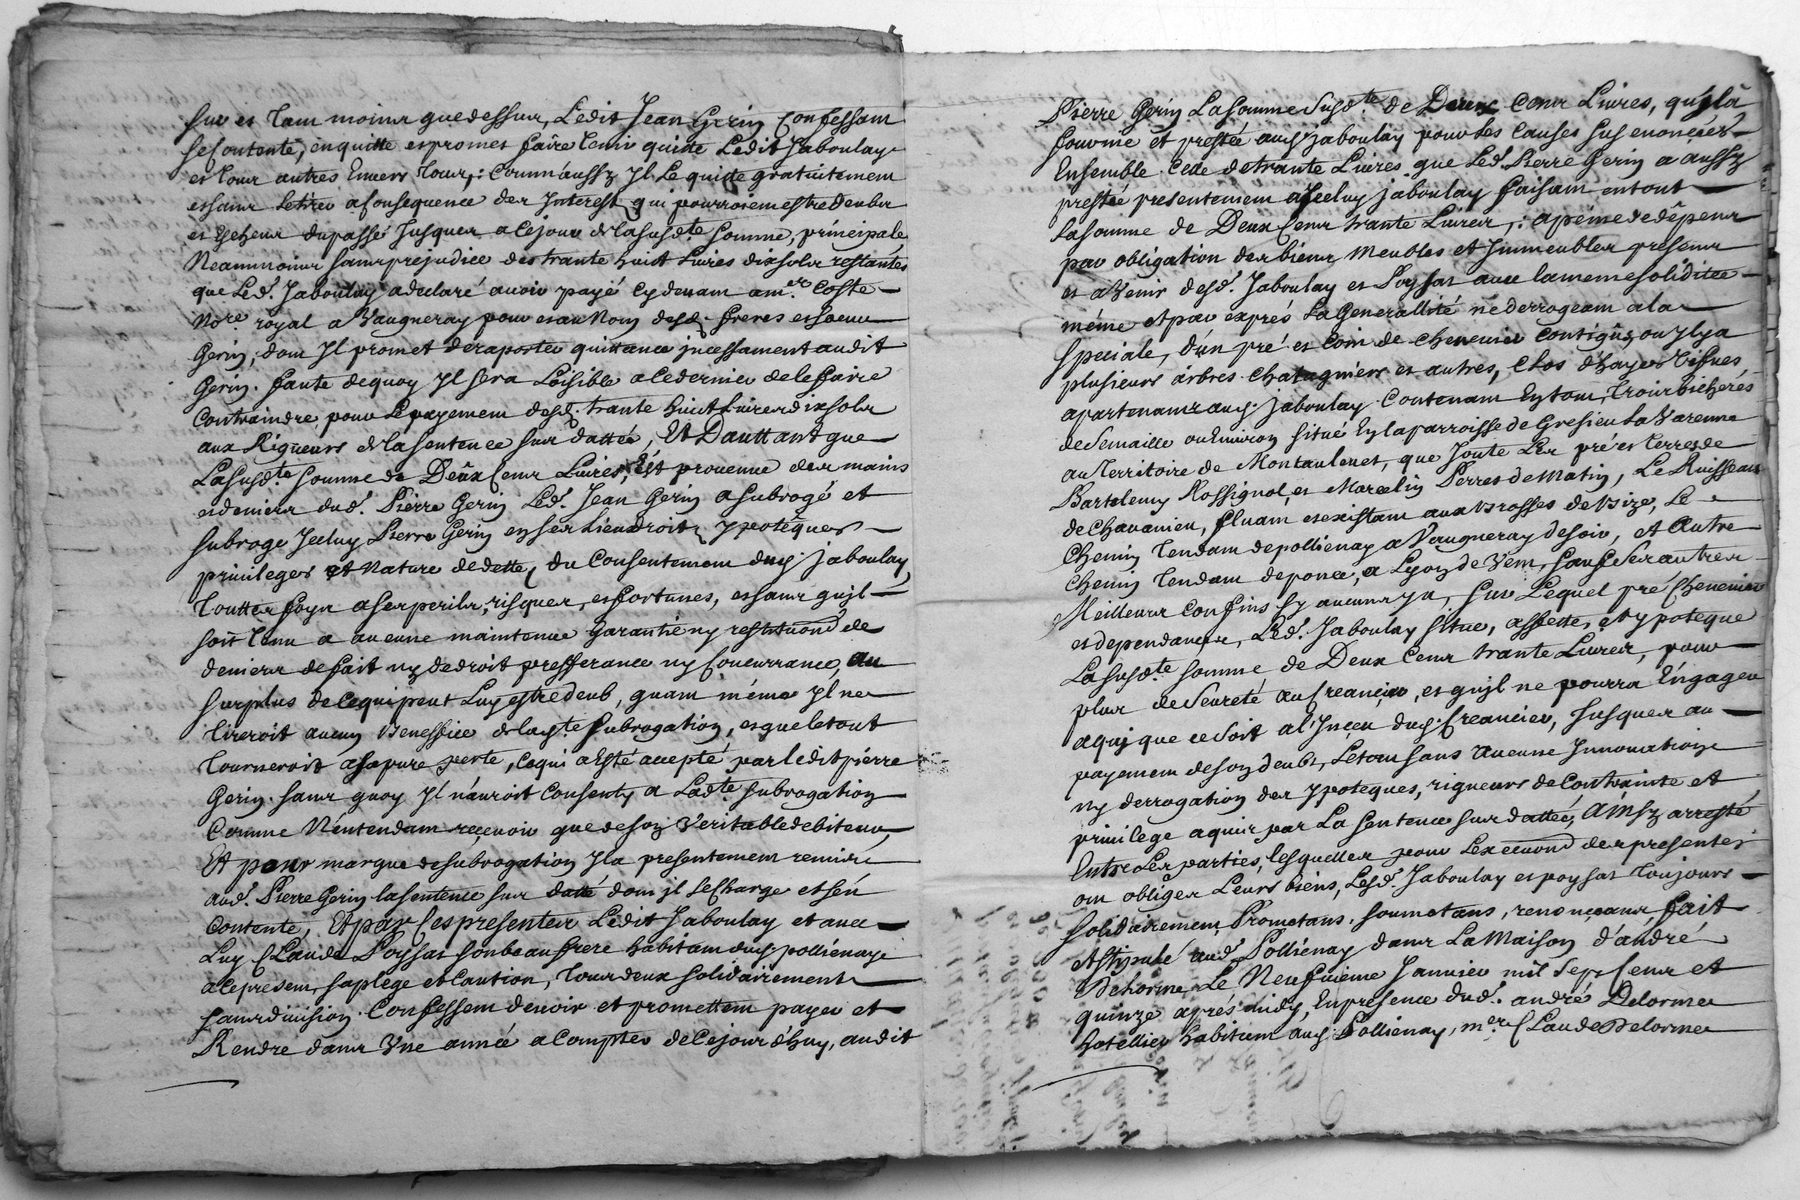 sur et tam moins que dessus, Ledit Jean Gerin Confessant
se Contente, en quitte et promet faire tenir quitte Ledit Jaboulay
et tour autres Envers tour,: Comm'aussy Jl Le quitte gratuitement
et sans tirer a Consequence des Jnterest qui pourroient estre deubs
et escheus du passé Jusques a Ce jour de la susd.te Somme, principale
Neanmoins sans prejudice des trante huit Livres dix sols restantes
que Led. Jaboulay a declaré avoir payé cy devant a m.re Coste
No.re royal a Vaugneray pour et au Nom desd. freres et soeur
Gerin; dont Jl promet de raporter quittance jncessament audit
Gerin. faute de quoy Jl sera Loisible a ce dernier de le faire
Contraindre, pour Le payement desd. trante huit Livres dix sols
aux Rigueurs de la sentence sur dattée, Et Dauttant que
La susd.te Somme de Deux Cens Livres, Est provenue des mains
et deniers dud. Pierre Gerin Led. Jean Gerin a subrogé et
subroge Jceluy Pierre Gerin en ses Lieu droits ypotêques
privileges et Nature de dette, du Consentement dud. Jaboulay
touttes foys a ses perils, risques, et fortunes, et sans qu'jl
soit tenu a aucune maintenue garantie ny restitu͠on de
deniers de fait ny de droit presferance ny Concurrance, au
surplus de ce qui peut Luy estre deub, quam même Jl ne
tireroit aucun Benefice de lad.te Subrogation, et que le tout
tourneroit a sa pure perte, Ce qui a esté accepté par ledit pierre
Gerin. sans quoy Jl n'auroit Consenty a Lad.te subrogation
Comme N'entendam reçevoir que de son Veritable debiteur,
Et pour marque de subrogation Jl a presentement remis
aud. Pierre Gerin la sentence sur datté dont jl se Charge et s'en
Contente, Et par Ces presentes Ledit Jaboulay et avec
Luy Claude Poysat son beau frere habitam dud. pollienay
a Ce present, sa plege et Caution, tour deux solidairement
sans division. Confessent devoir et promettent payer et
Rendre dans Vne année a Compter de Ce jour d'huy, audit
Pierre Gerin La somme Susd.te de Deux Cens Livres, qu'jl a
fournie et prestée aud. Jaboulay pour Les Causes sus enoncées
Ensemble Celle de trante Livres que Led. Pierre Gerin a aussy
prestée presentement a Jceluy Jaboulay faisant en tout
la somme de Deux Cens trante Livres,: a peine de dêpens
par obligation des biens Meubles et Jmmeubles presens
et a Venir desd. Jaboulay et Poysat avec la meme soliditée
même et par exprés La Generallité ne derrogeam a la
speciale, d'un pré et Coin de chenevier Contigus, ou Jl y a
plusieurs árbres Chatagniers et autres, Clos d'hayes Visves
apartenans aud. Jaboulay Contenam En tout, trois bicherés
de Semaille ou Environ situé En la parroisse de Gresieu La Varenne
au territoire de Montaulenet, que Joute Les pré et terres de
Bartelemy Rossignol, et Marcelin Perres de Matin, Le Ruisseau
de Chavanieu, fluam et existam aux Brosses de Bize, Le
Chemin tendam de pollienay a Vaugneray de soir, et Autre
Chemin tendam de ponce, a Lyon de Vent, sauf Ses autres
Meilleurs Confins sy aucuns y a, sur Lequel pré Chenevier
et dependances, Led. Jaboulay situe, assette, et ypoteque
La susd.te somme de Deux Cens trante Livres, pour
plus de Seureté au Creancier, et qu'jl ne pourra Engager
a qui que ce soit a l'Jnceu dud. Creancier, Jusques au
payement de son deub, Le tout sans aucune Jnnovation
ny derrogation des ypoteques, rigueurs de Contrainte et
privilege aquis par La sentence sur dattée, Ainsy arresté
Entre Les parties, lesquelles pour L'execu͠on des presentes
on obliger Leurs biens, Lesd. Jaboulay et poysat toujours
solidairement Prometans. soumetans, renonçans, fait
et stipulé aud. Pollienay dans La Maison d'andré
Delorme, Le Neufvieme Janvier mil Sept Cens et
quinze aprés midy, En presence dud. andré Delorme
hotellier habitam aud. Pollienay, m.re Claude Delorme